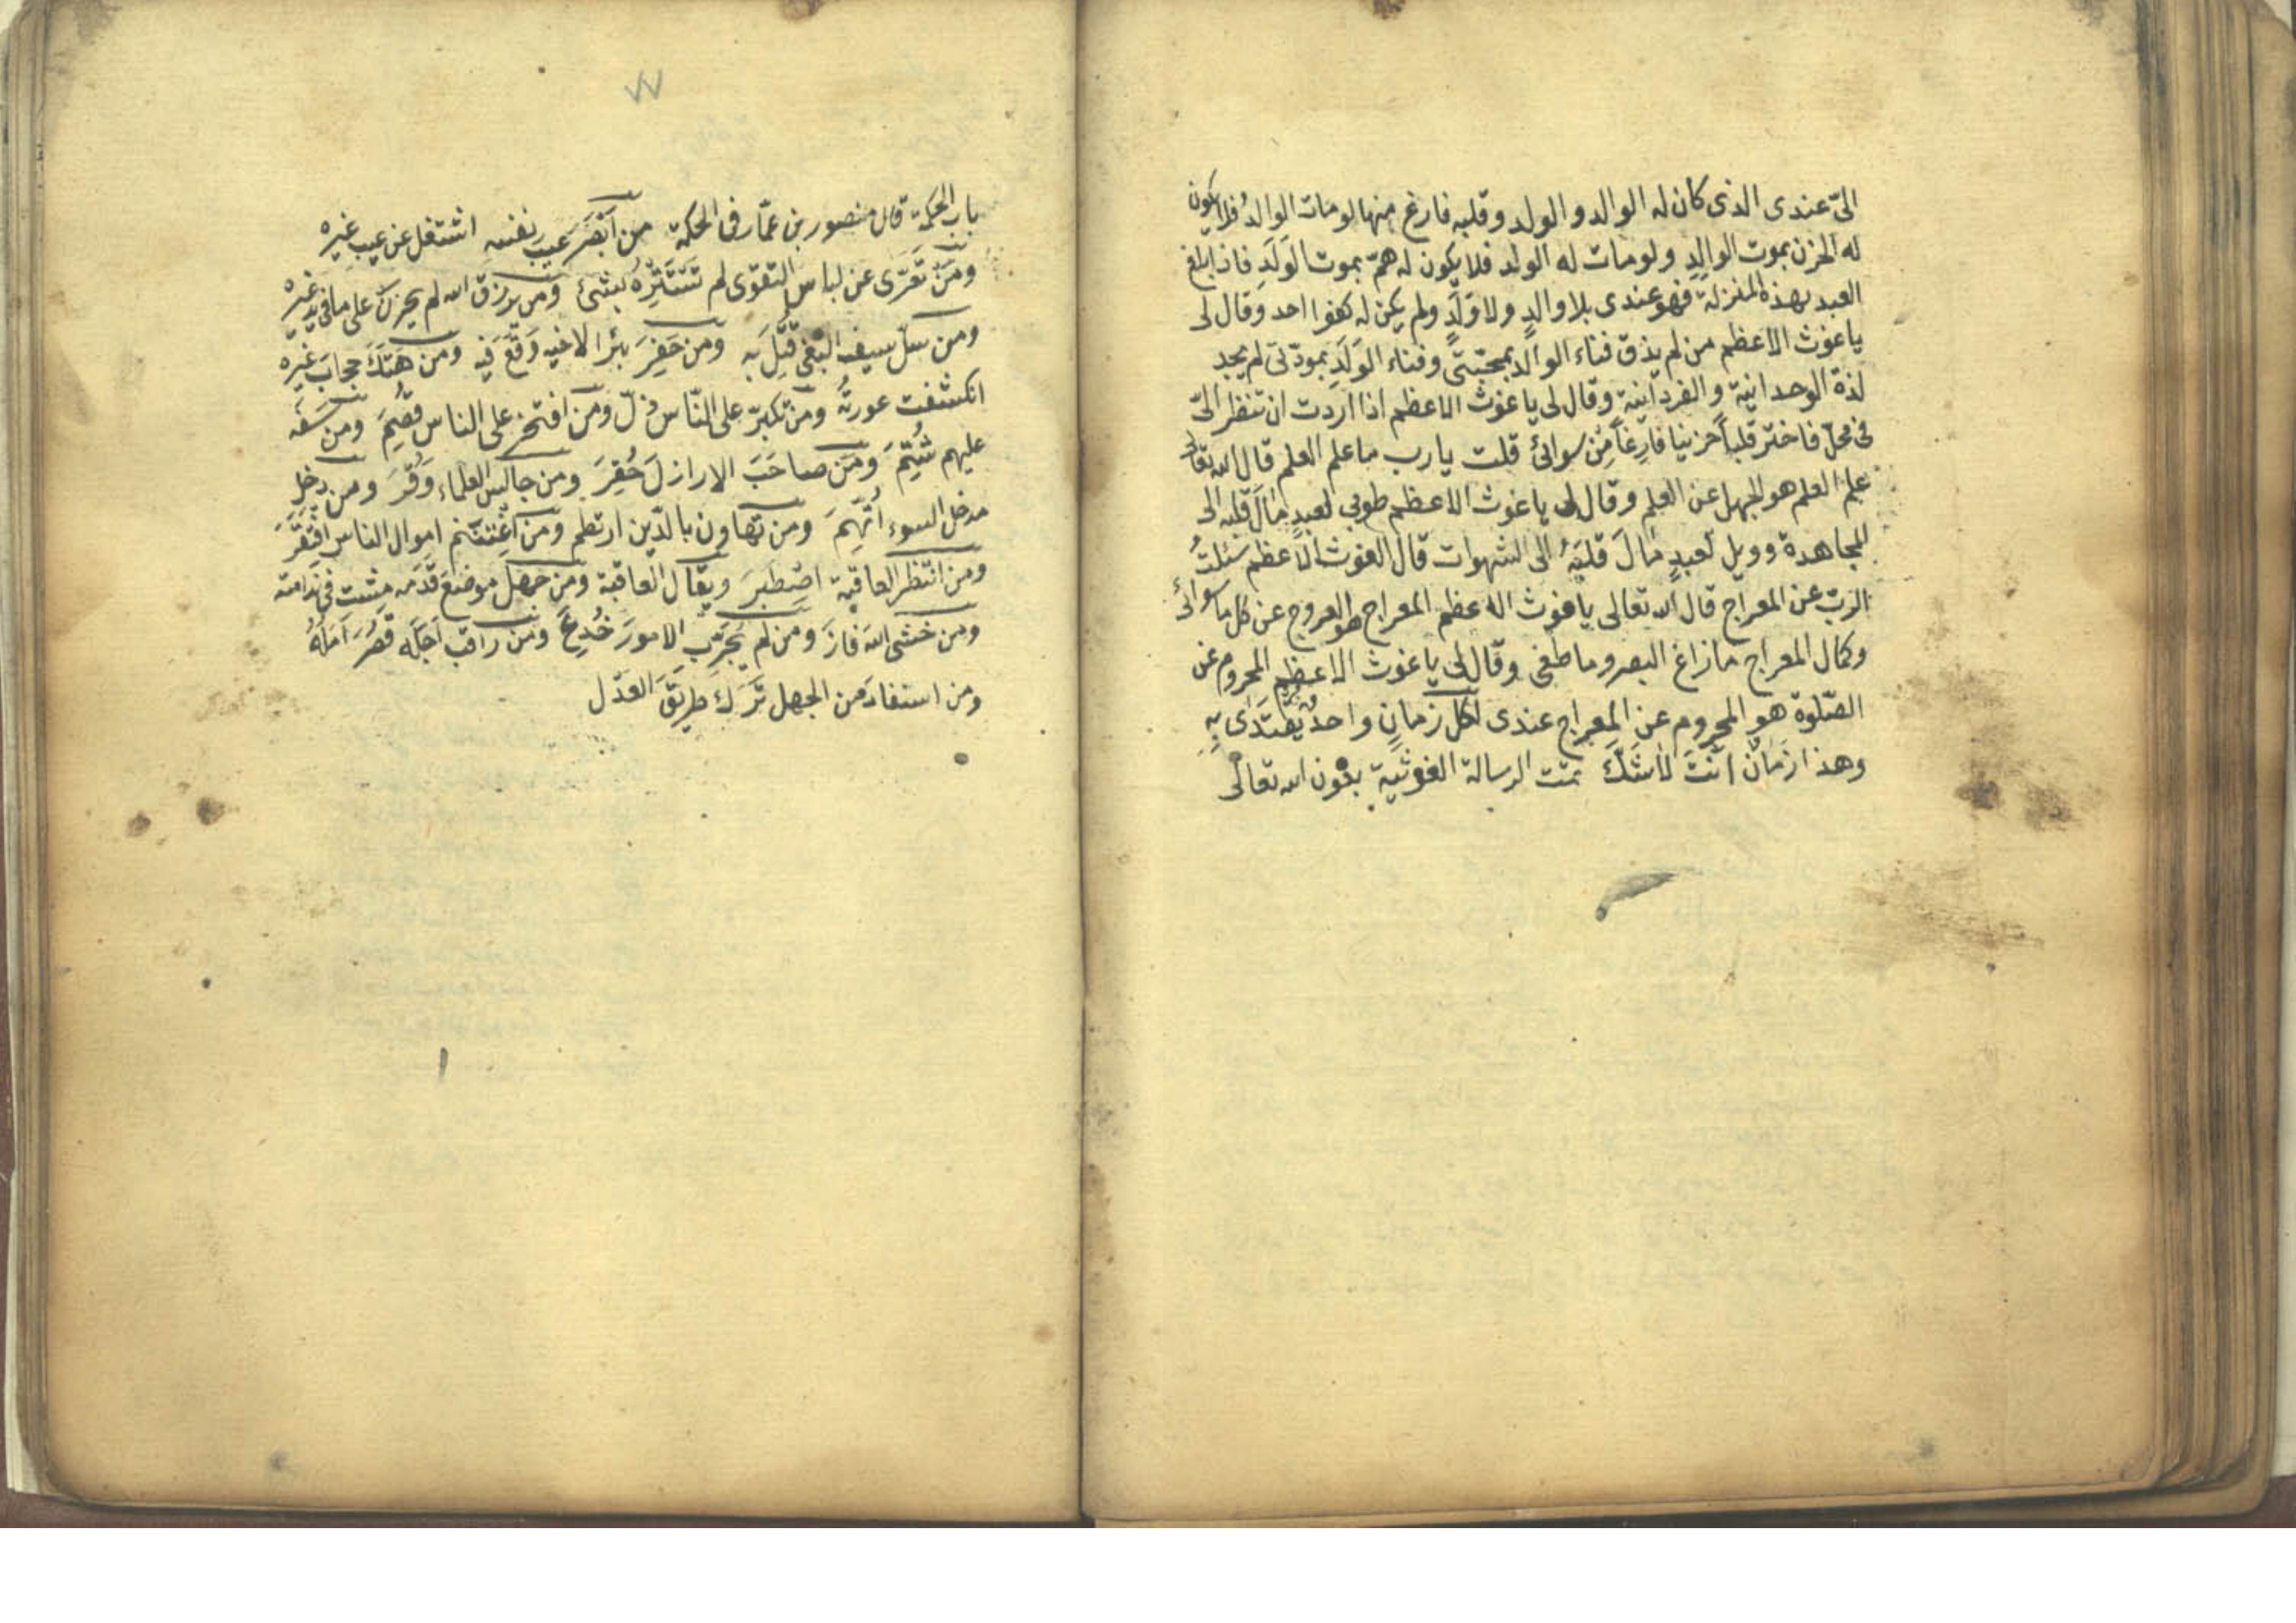 الىّ عندى الذى كان له الوالد والولد وقلبه فارغ منها لو مات الوالدُ فلا يكون
له الحزن بموت الوالدِ ولو مات له الولد فلا يكون له همّ بموت الوَلَدِ فاذا بلغ
العبد بهذه المنزلة فهو عندى بلا والدٍ ولا وَلَدٍ ولم يكن له كفوا احد وقال لى
يا غوث الاعظم من لم يذق فناء الوالد بمحبّتى وفناء الوَلَدِ بمودّتى لم يجد
لذة الوحدانية والفردانية وقال لى يا غوث الاعظم اذا اردت ان تنظر الىّ
فى محلّ فاختر قلباً حزينا فارِغاً مِن سوائى قلت يا رب ما علم العلم قال الله تعالى
علم العلم هو الجهل عن العلم وقال لى يا غوث الاعظم طوبى لعبدٍ مالَ قلبه الى
المجاهدة وويل لعبدٍ مالَ قلبَهُ الى الشهوات قال الغوث الاعظم سئلتُ
الربّ عن المعراج قال الله تعالى يا غوث الاعظم المعراج هو العروج عن كل ما سوائى
وكمال المعراج ما زاغ البصر وما طغى وقال لى يا غوث الاعظم المحروم عن
الصّلوة هو المحروم عن المعراج عندى لكل زمانٍ واحدٌ يُقْتَدٰى بِهِ
وهذا زَمَانٌ اَنْتَ لاٰشَكَّ تمّت الرسالة الغوثية بعون الله تعالى
٧٧
باب الحكمة قال منصور بن عمّار فى الحكمة من اَبْصَرَ عيبَ نفسه اشتغل عن عيب غيره
ومَن تَعَرّى عن لباس التقوى لم تَسَتَتِرُهُ بشئ ومن برزق الله لم يحزن على ما فى يد غيره
ومن سلّ سيف البغى قُتِلَ به ومن حَفِرَ بئرا لاخيه وَقَعَ فيه ومن هَتَكَ حجابَ غيره
انكشفت عورتُه ومن تكبّر على النّاس ذلّ ومن افتخر على الناس قُصِمَ ومن سَفَه
عليهم شُتِمَ ومَن صاحَبَ الارازلَ حُقِرَ ومن جالس العلماء وُقِّرَ ومن دخل
مدخل السوء اُتُّهِمَ ومن تهاون بالدّين ارتطم ومن اغتنم اموال الناس افتَقَرَ
ومن انتظر العاقبة اصْطبَرَ ويقال العاقبة ومن جهل موضع قدَمه مشت فى ندامته
ومن خشى الله فازَ ومن لم يُجَرِّب الامورَ خُدِعَ ومن راقب اَجَلَه قَصُرَ اَمَلُهُ
ومن استفادَ من الجهل تَرَكَ طريقَ العدل